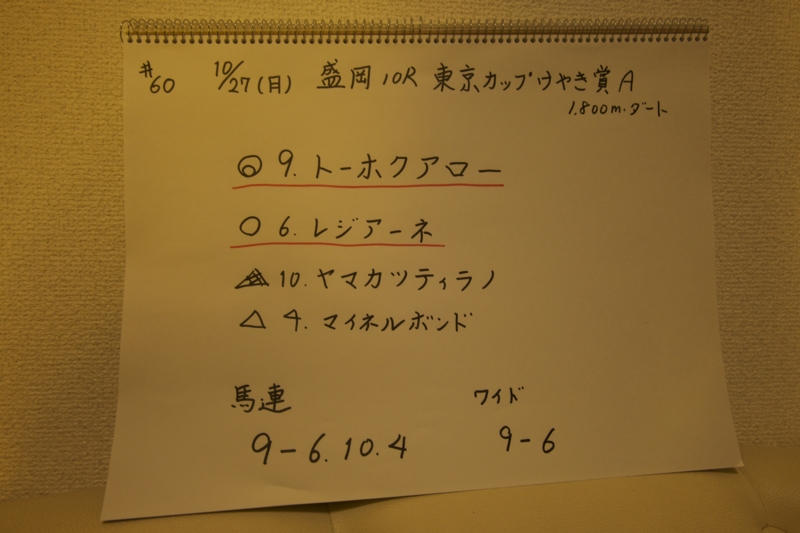 #60 10/27(月) 盛岡10R 東京カップけやき賞A
1.800m・ダート
◎ 9. トーホクアロー
○ 6. レジアーネ
▲ 10. ヤマカツティラノ
△ 4. マイネルボンド
馬連 ワイド
9-6.10.4 9-6